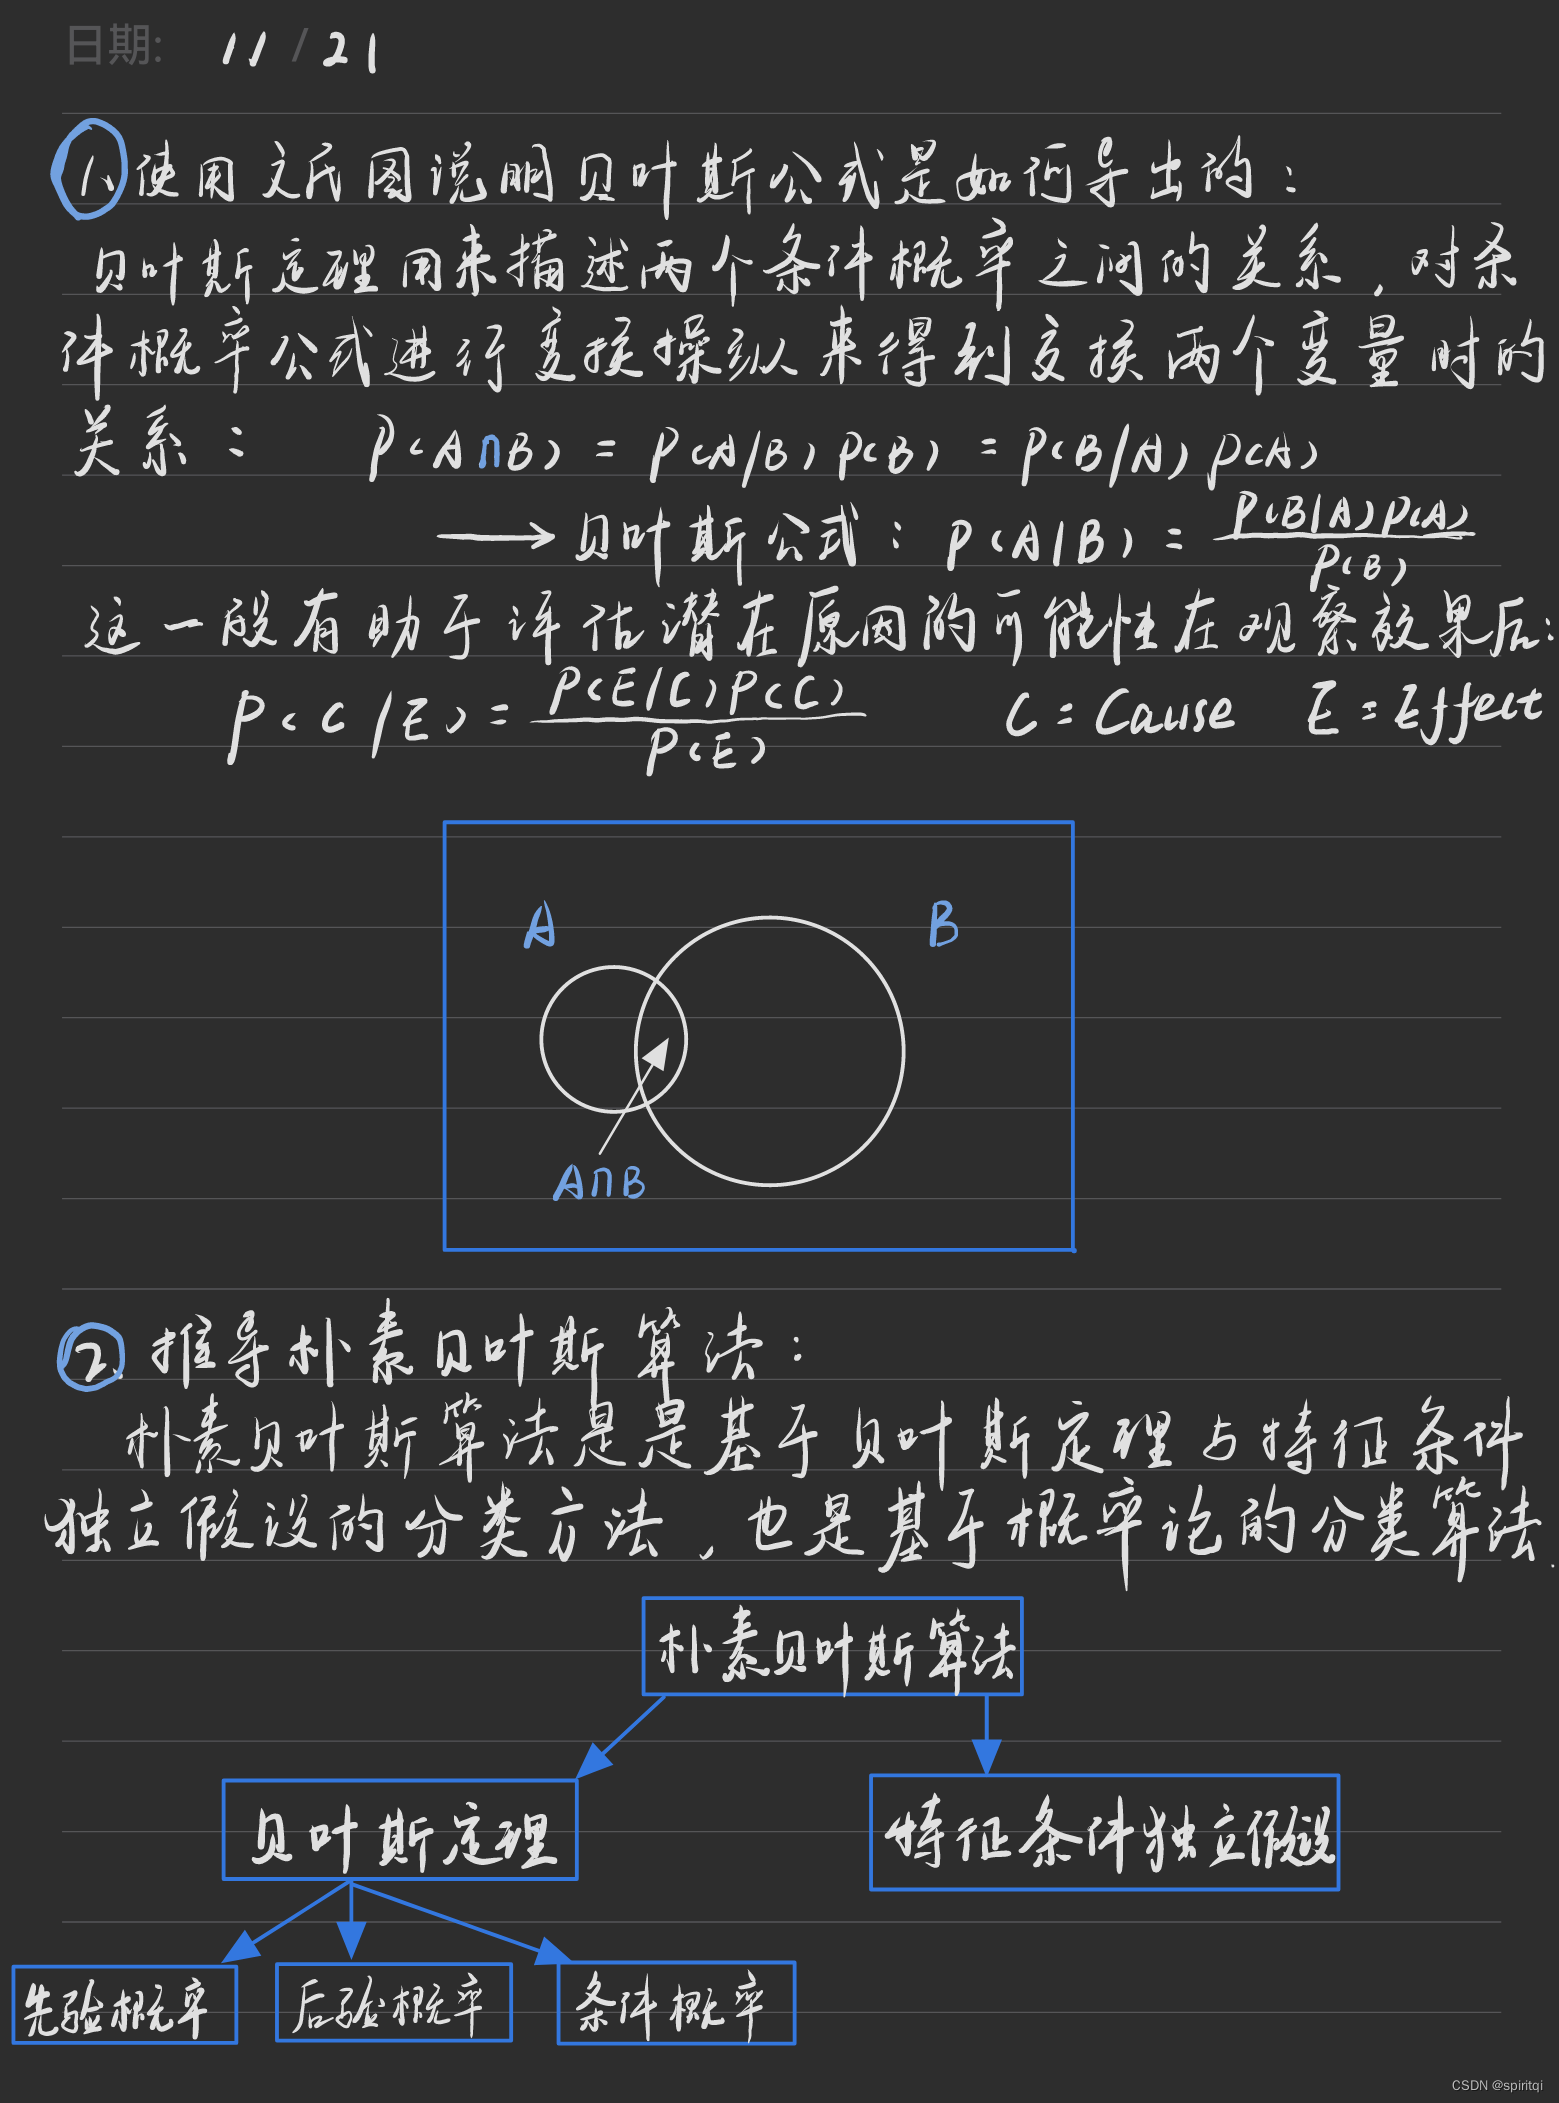 日期: 11 / 21
1、使用文氏图说明贝叶斯公式是如何导出的：
贝叶斯定理用来描述两个条件概率之间的关系，对条
件概率公式进行变换操纵来得到交换两个变量时的
关系： P(A∩B) = P(A/B) P(B) = P(B/A) P(A)
→ 贝叶斯公式： P(A|B) = P(B|A)P(A) / P(B)
这一段有助于评估潜在原因的可能性在观察效果后：
P(C/E) = P(E/C)P(C) / P(E) C = Cause E = Effect
A B
A∩B
2、推导朴素贝叶斯算法：
朴素贝叶斯算法是是基于贝叶斯定理与特征条件
独立假设的分类方法，也是基于概率论的分类算法.
朴素贝叶斯算法
贝叶斯定理 特征条件独立假设
先验概率 后验概率 条件概率
CSDN @spiritqi